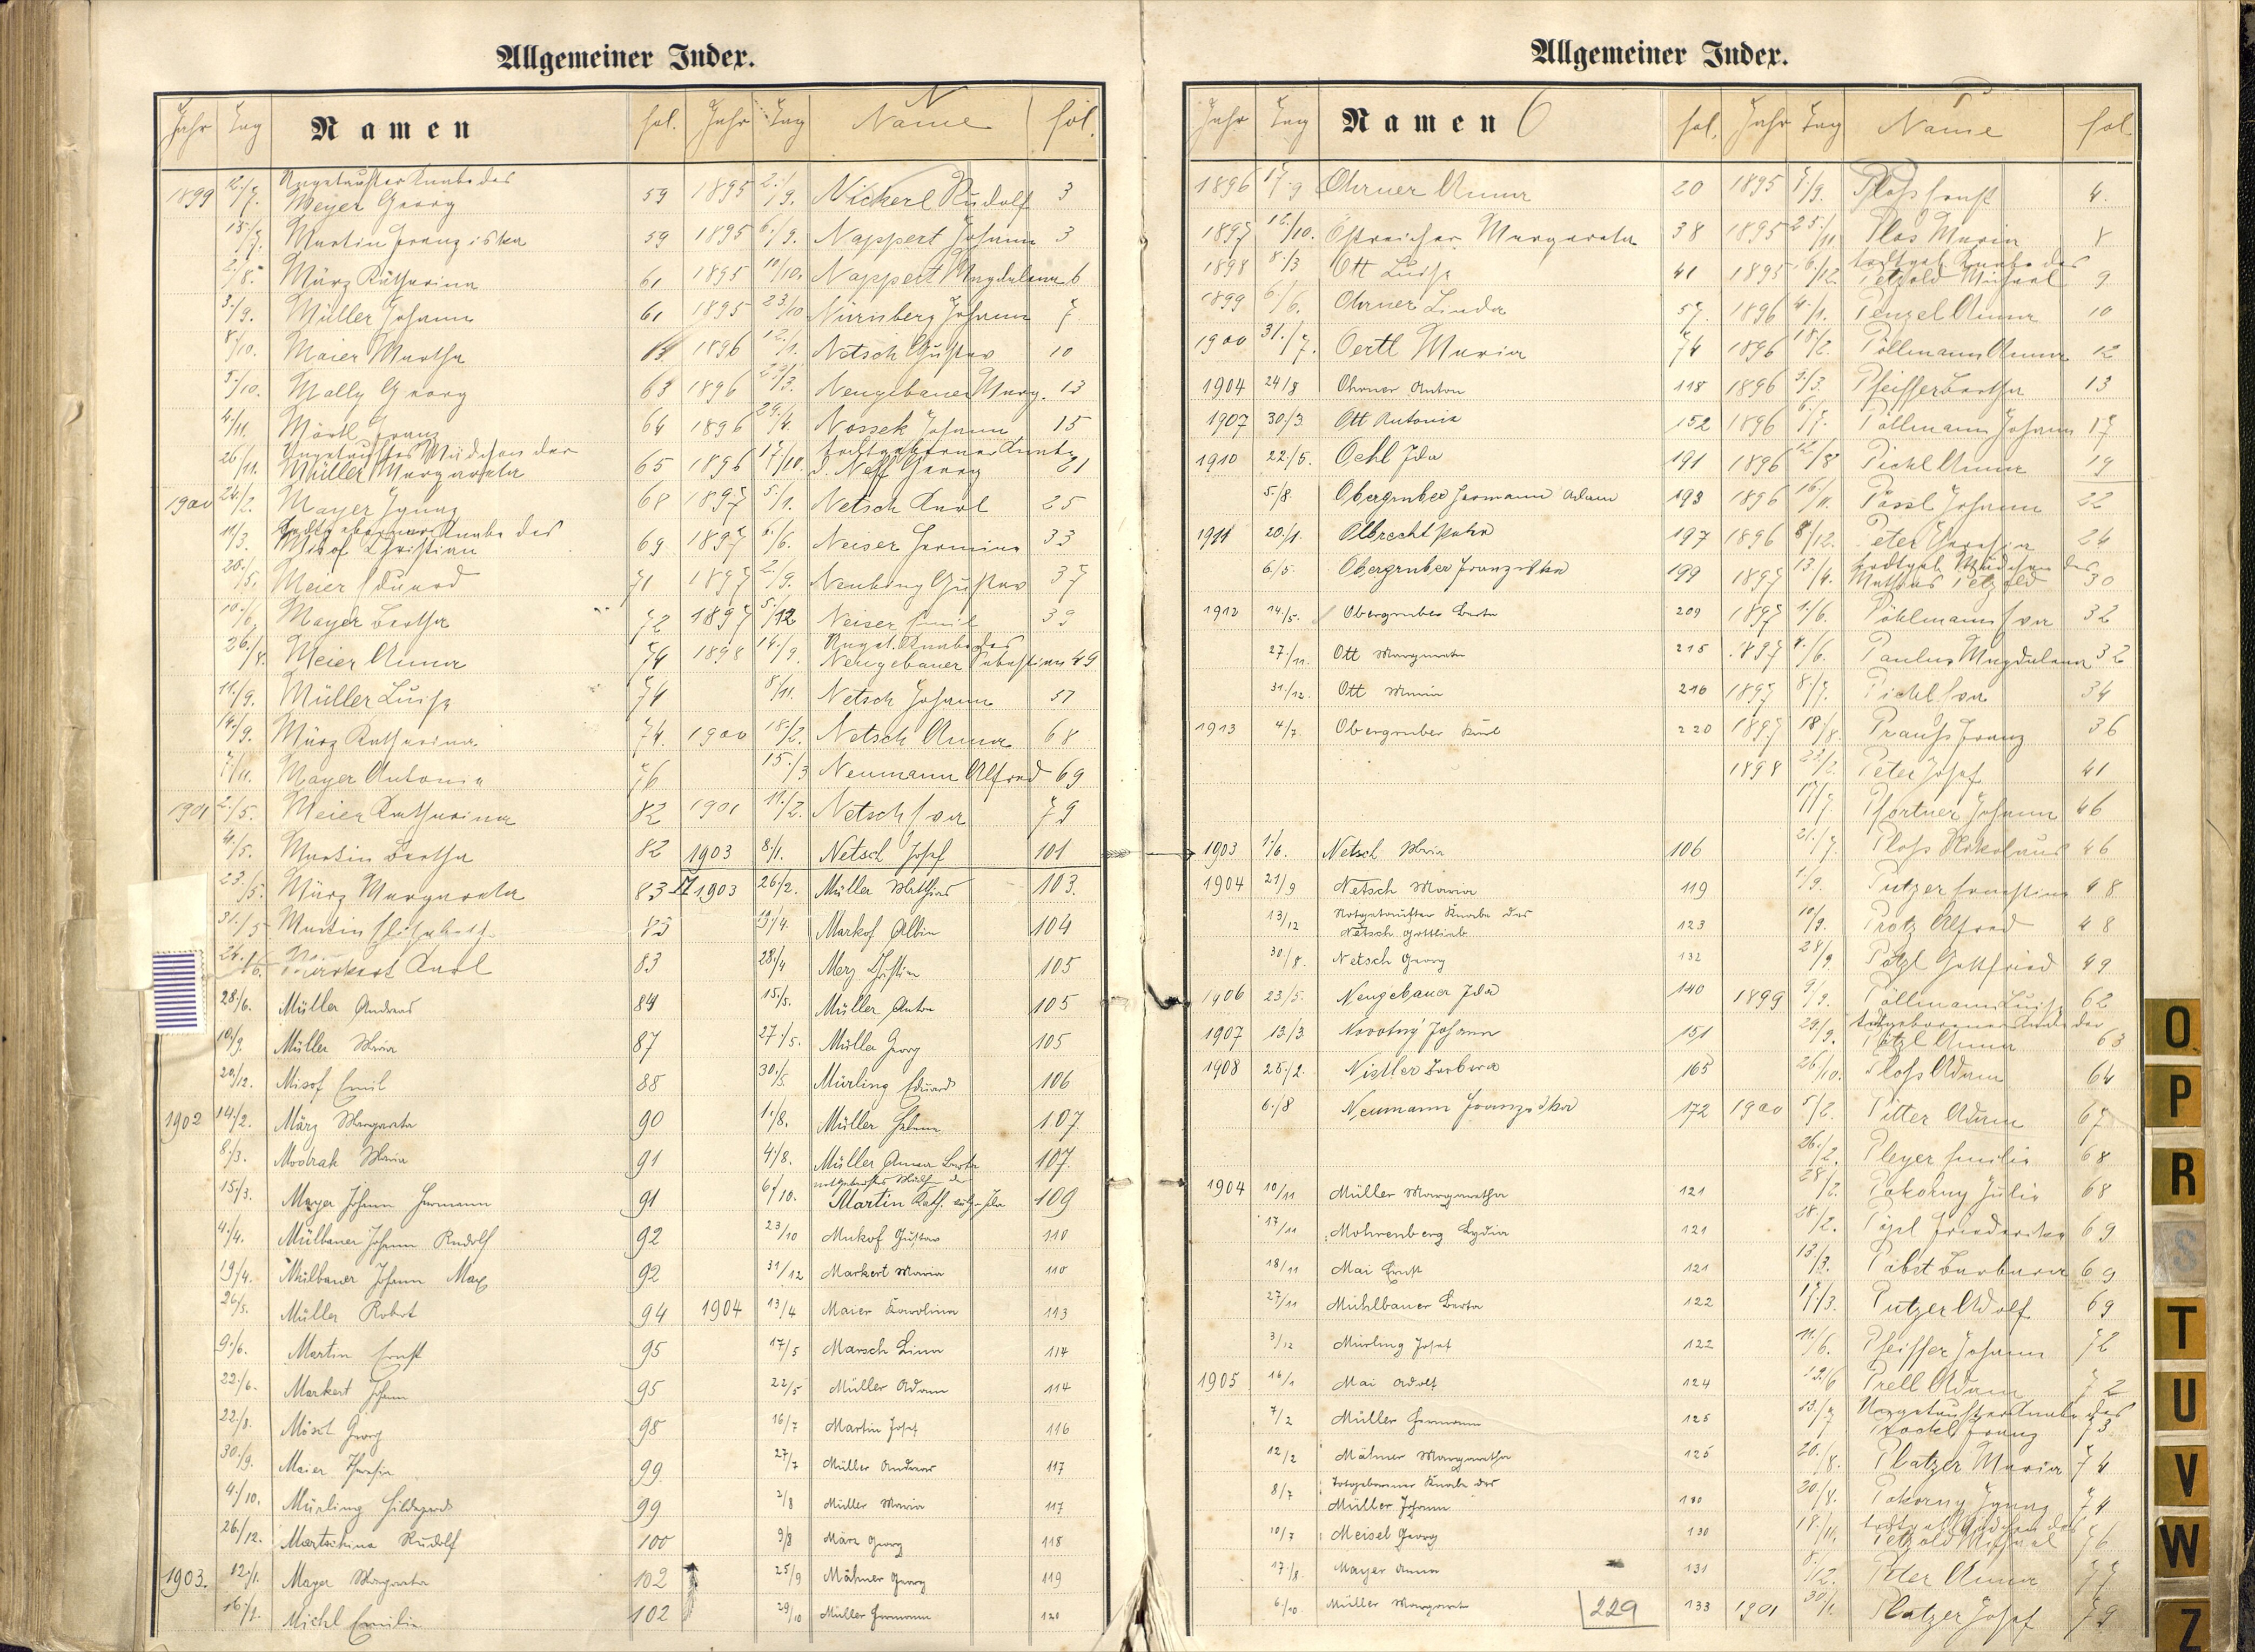 Allgemeiner Index.
Jahr Tag Namen fol. Jahr Tag N Name fol.
1899 12./7. Ungetaufter Knabe des
Meyer Georg 59
13./7. Martin Franziska 59
2./8. März Katharina 61
3./9. Müller Johann 61
8./10. Maier Martha
5./10. Mally Georg 63
4./11. Mörtl Franz 64
26./11. Ungetauftes Mädchen der
Müller Margareta 65
1900 24./2. Mayer Ignaz 68
11/3. Todtgeborner Knabe des
Misof Christian 69
20./5. Meier Eduard 71
10./6. Mayer Bertha 72
26./8. Meier Anna 74
11./9. Müller Luise 74
14./9. März Katharina 74.
7./11. Mayer Antonia 76
1901 2./5. Meier Katharina 82
4/5. Martin Bertha 82
23./5. März Margareta 83
31./5 Martin Elisabeth 83
24./6. Markert Karl 83
28./6. Müller Andreas 84
10./9. Müller Maria 87
20/12. Misof Emil 88
1902 14./2. März Margareta 90
8./3. Modrak Maria 91
15./3. Mayer Johann Hermann 91
4./4. Mülbauer Johann Rudolf 92
19/4. Mülbauer Johann Max 92
26/5. Müller Robert 94
9./6. Martin Ernst 95
22./6. Markert Johann 95
22./8. Mösl Georg 98
30./9. Maier Theresia 99
4./10. Mürling Hildegard 99
26./12. Martschina Rudolf 100
1903. 12./1. Mayer Margareta 102
16./1. Michl Emilie 102
1895 2./9. Nickerl Rudolf 3
1895 6./9. Nappert Johann 3
1895 10/10. Nappert Magdalena 6
1895 23./10 Nürnberg Johann 7
1896 12./1. Netsch Gustav 10
1896 23/3. Neugebauer Marg. 13
1896 29./4. Nossek Johann 15
1896 17/10. todtgeborner Knabe
d. Neff Georg 21
1897 5./1. Netsch Karl 25
1897 6./6. Neiser Hermine 33
1897 2./9. Neuberg Gustav 37
1897 5./12 Neiser Emil 39
1898 14./9. Unget. Knabe des
Neugebauer Sebastian 49
8/11. Netsch Johann 51
1900 18./2. Netsch Anna 68
15./3 Neumann Alfred 69
1901 11./2. Netsch Eva 79
1903 8./1. Netsch Josef 101
M 1903 26./2. Müller Mathias 103.
19./4. Markof Albin 104
28./4 Merz Christian 105
15./5. Müller Anton 105
27./5. Müller Georg 105
30./5. Mürling Eduard 106
1./8. Müller Helene 107
4./8. Müller Anna Berta 107.
6/10. notgetauftes Mädch. der
Martin Kath. 109
23/10 Mukof Gustav 110
31/12 Markert Maria 110
1904 13/4 Maier Karolina 113
17/5 Marsch Lina 114
22/5 Müller Adam 114
16/7 Martin Josef 116
27/7 Müller Andreas 117
2/8 Müller Maria 117
9/8 März Georg 118
25/9 Mähner Georg 119
29/10 Müller Hermann 120
Allgemeiner Index.
Jahr Tag Namen O fol. Jahr Tag P Name fol.
1896 17./9 Ohrner Anna 20
1897 12./10. Östreicher Margareta 38
1898 8./3 Ott Luise 41
1899 6/6. Ohrner Linda 57.
1900 31./7. Oertl Maria 74
1904 24/8 Ohrner Anton 118
1907 30/3. Ott Antonia 152
1910 22/5. Oehl Ida 191
5./8. Obergruber Hermann Adam 193
1911 20./1. Olbrecht 197
6./5. Obergruber Franziska 199
1912 14./5. Obergruber Berta 209
27./11. Ott Margareta 215
31./12. Ott Maria 216
1913 4/7. Obergruber Karl 220
1903 1./6. Netsch Maria 106
1904 21/9 Netsch Maria 119
13/12 Notgetaufter Knabe des
Netsch Gottlieb 123
30./8. Netsch Georg 132
1906 23/5. Neugebauer Ida 140
1907 13./3 Novotný Johann 151
1908 28./2. Nistler Barbara 165
6./8 Neumann Franziska 172
1904 10/11 Müller Margaretha 121
17/11 Mohrenberg Lydia 121
18/11 Mai Ernst 121
27/11 Mühlbauer Berta 122
3/12 Mürling Josef 122
1905 16/1 Mai Adolf 124
7/2 Müller Hermann 125
12/2 Mähner Margaretha 125
8/7 Totgeborener Knabe des
Müller Johann 130
10/7 Meisel Georg 130
17./8 Mayer Anna 131
6/10 Müller Margaret 229 133
1895 7/9. Ploß Ernst 4.
1895 25./11 Plos Maria 8
1895 6./12. todtgeb. Knabe des
Petzold Michael 9
1896 4./1. Penzel Anna 10
1896 18/2. Pöllmann Anna 12
1896 3./3. Pfeiffer Bertha 13
1896 6./7. Pöllmann Johann 17
1896 12/8 Pichl Anna 19
1896 16./11. Pössl Johann 22
1896 8/12. Peter Theresia 24
1897 13./4. todtgeb. Mädchen des
Mathias Petzold 30
1897 1./6. Pöhlmann Eva 32
1897 4./6. Paulus Magdalena 32
1897 8./7. Pichl Eva 34
1897 18./8. Prauß Franz 36
1898 22/2. Peter Josef 41
17/7. Pfortner Johann 46
21./7. Ploß Nikolaus 46
1/9. Putzer Ernestine 48
10/9. Protz Alfred 48
28/9 Pötzl Gottfried 49
1899 9/9. Pöllmann Luise 62
29./9. todtgeborener Knabe der
Pötzl Anna 63
26/10. Ploß Adam 64
1900 5/2. Pitter Adam 67
26./2. Pleyer Emilie 68
28/2. Pokorny Julie 68
28./2. Pigel Friederike 69
13./3. Pabst Barbara 69
17./3. Putzer Adolf 69
11./6. Pfeiffer Johann 72
12./6 Prell Adam 72
13./7 Ungetaufter Knabe des
Pockl Franz 73.
20./8. Platzer Maria 74
30/8. Pokorny Ignaz 74
18./11. todtgeb. Mädchen des
Petzold Michael 76
8/12. Peter Anna 77
1901 30/1. Platzer Josef 79
O
P
R
S
T
U
V
W
Z